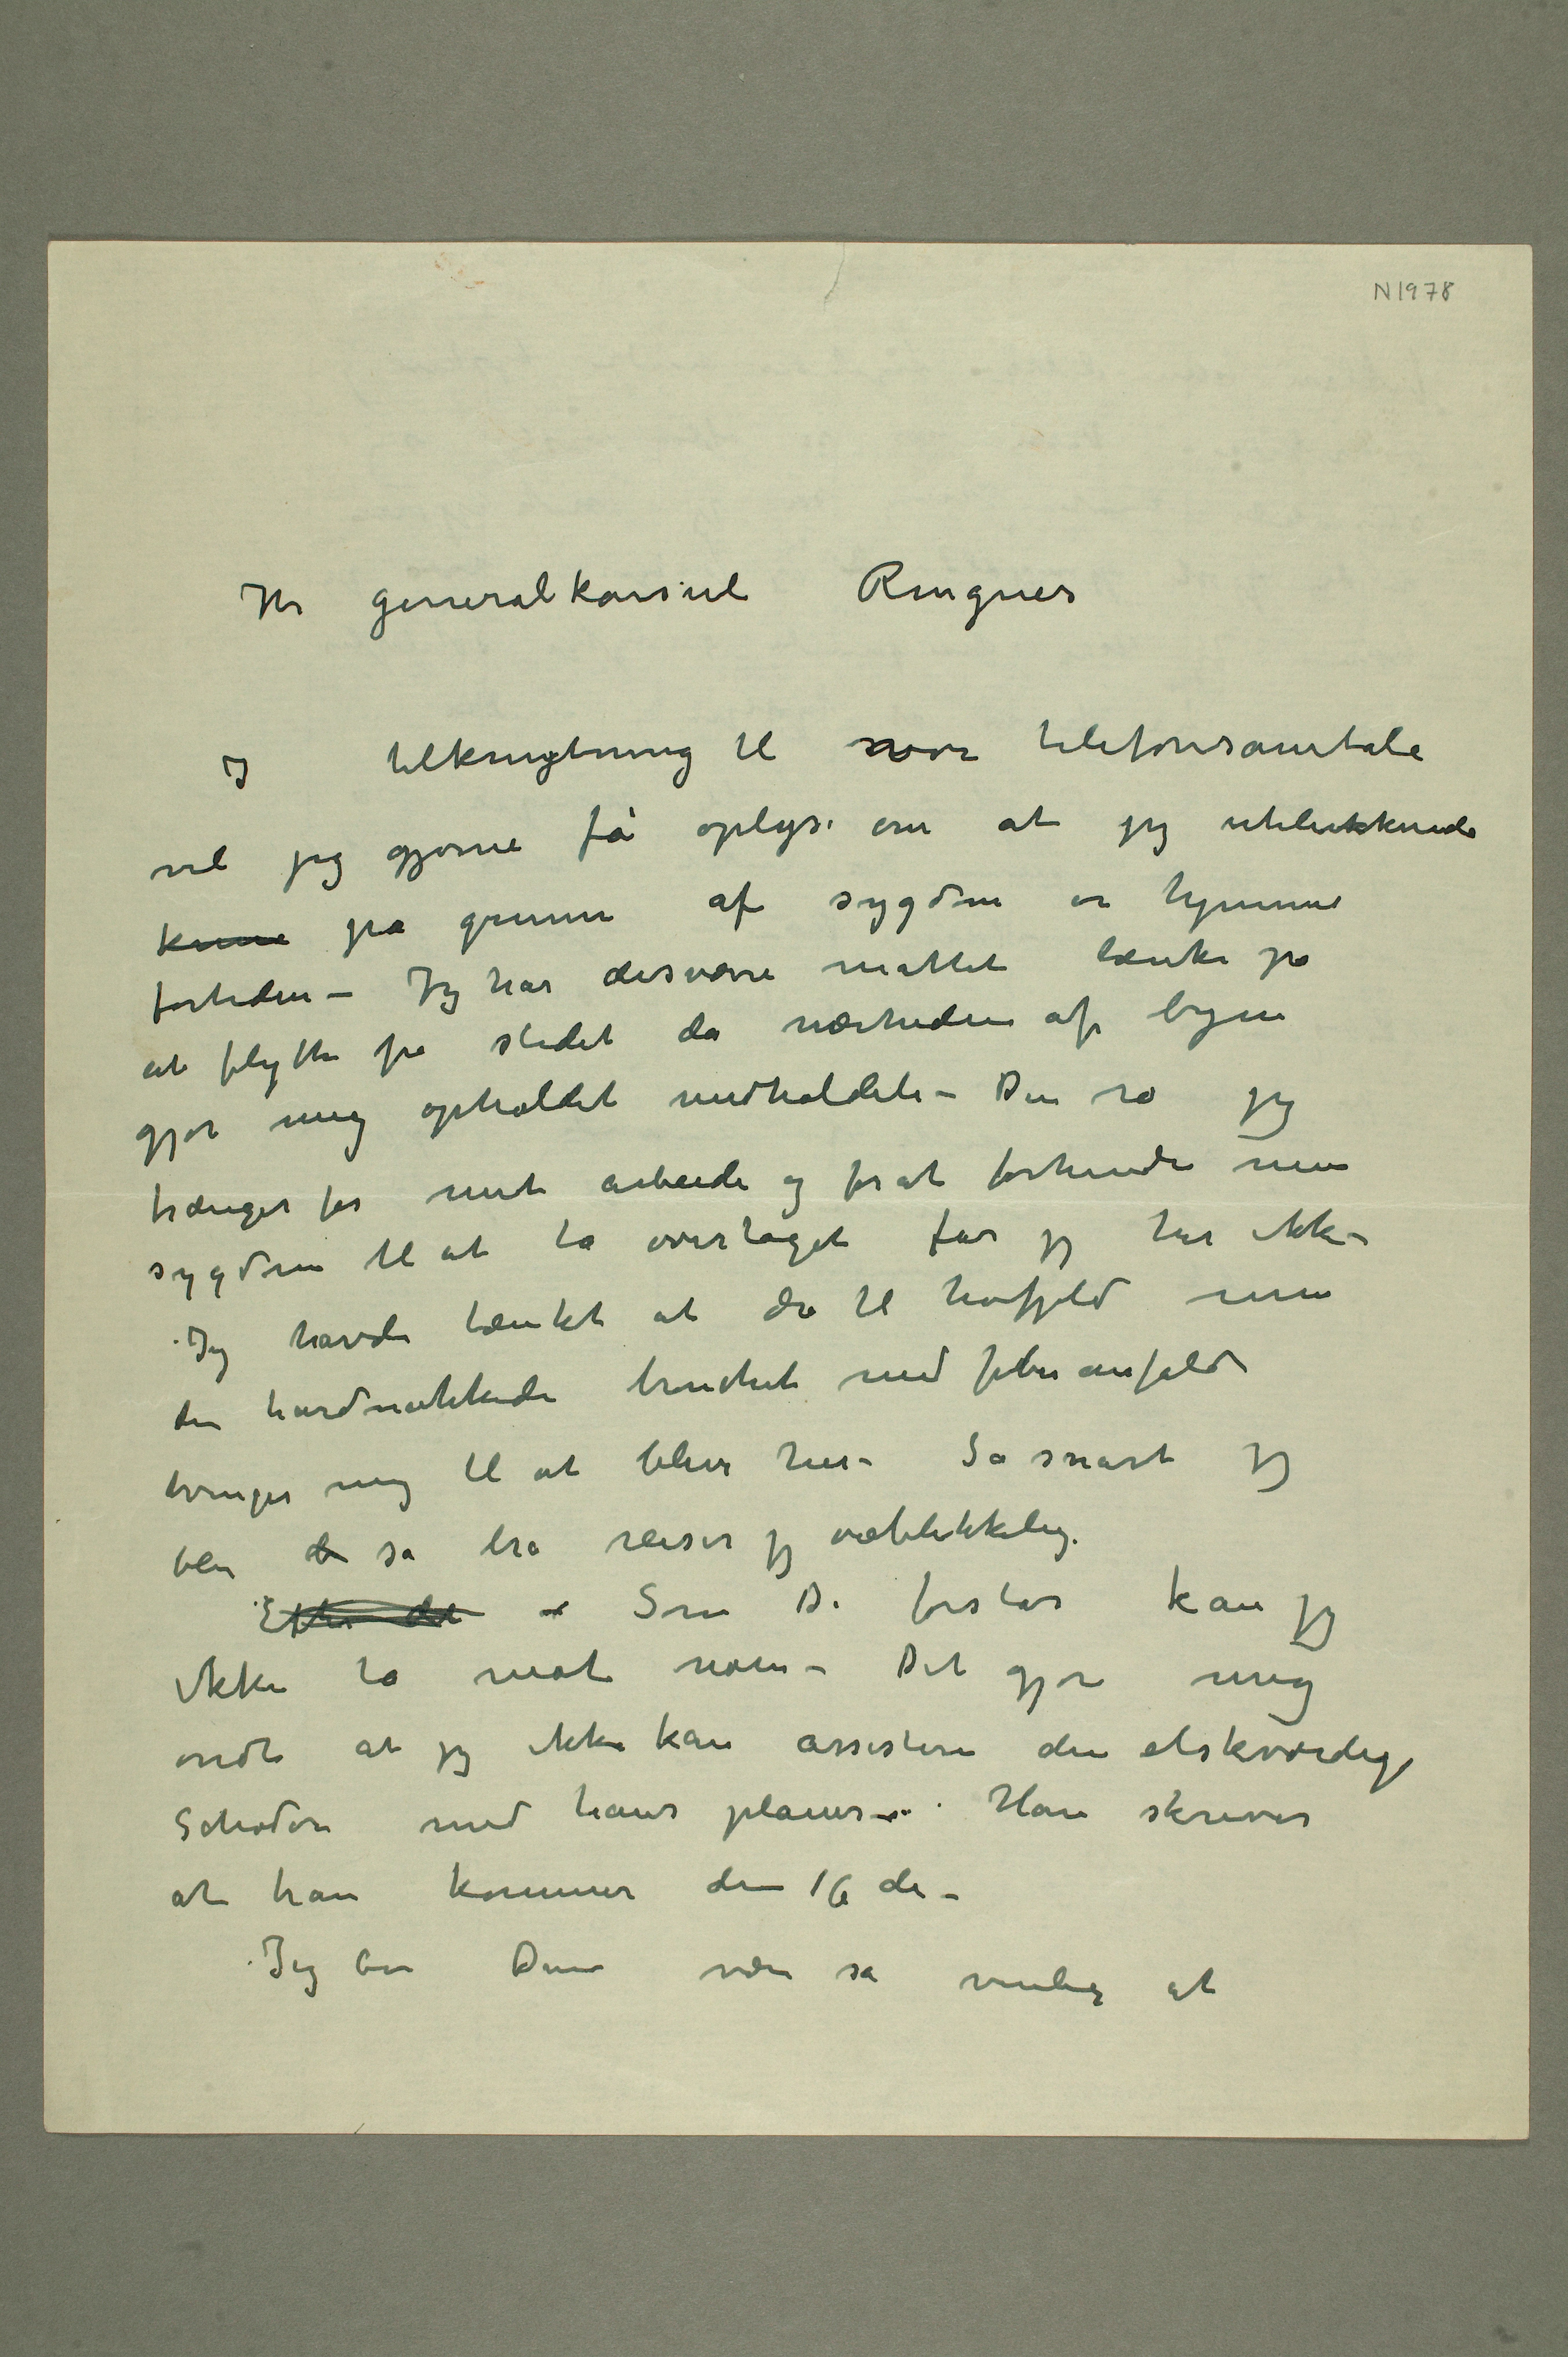 N1978
Hr generalkonsul Ringnes
I tilknytning til vor telefonsamtale
vil jeg gjerne få oplyse om at jeg utelukkende
kunne på grunn af sygdom er hjemme
fortiden – Jeg har desværre måttet tænke på
at flytte fra stedet da nærheden af byen
gjør mig opholdet uudholdeli – Den ro jeg
trænger for mit arbeide og for at forhindre min
sygdom til at ta overtaget får jeg her ikke –
Jeg havde tænkt at dra til høifjeld men
den hårdnakkede bronchit med feberanfald
tvinger mig til at blive her – Så snart jeg
blir så bra reiser jeg øieblikkelig.
Efter det – Som De forstår kan jeg
ikke ta mot noen – Det gjør mig
ondt at jeg ikke kan assistere den elskværdige
Schoder med hans planer – Han skriver
at han kommer den 16 de –
Jeg ber Dem være så venlig at